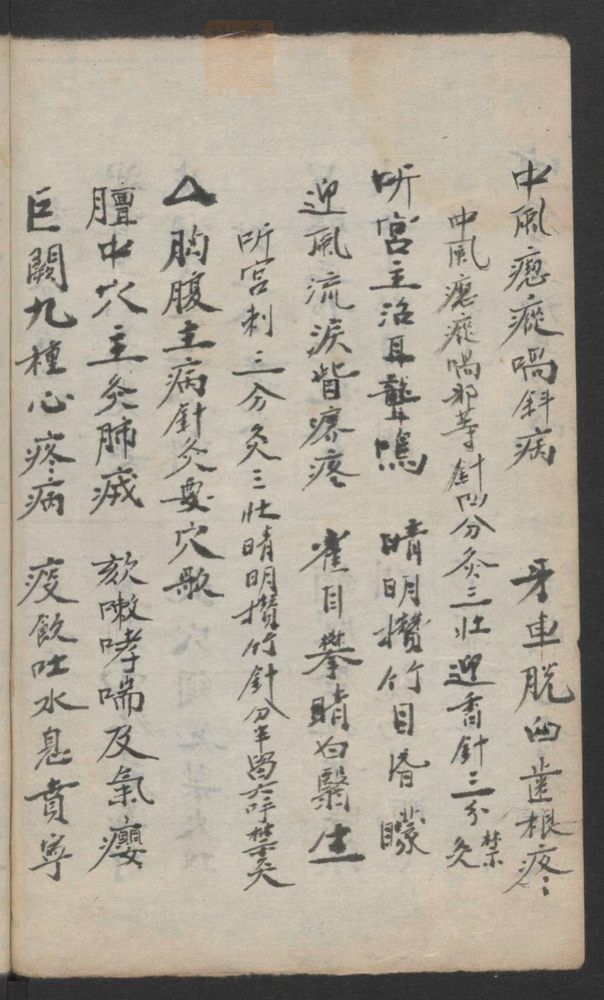 中風瘛瘲喎斜病 牙車脱臼齒根疼
中風瘛瘲喎邪等針四分灸三壯迎香針三分禁灸
听宮主治耳聾鳴 睛明攢竹目昏矇
迎風流淚眥癢疼 雀目攀睛白翳生
听宮刺三分灸三壯晴明攢竹針分半畄六呼禁灸
△胸腹主病針灸要穴歌
膻中穴主灸肺 欬嗽哮喘及氣癭
巨闕九種心疼病 痰飲吐水息賁寧